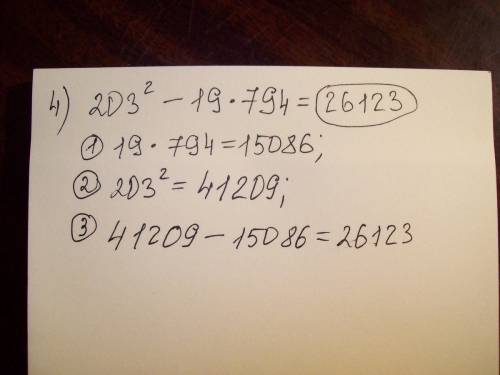 4) 203² − 19 · 794 = 26123
① 19 · 794 = 15086;
② 203² = 41209;
③ 41209 − 15086 = 26123